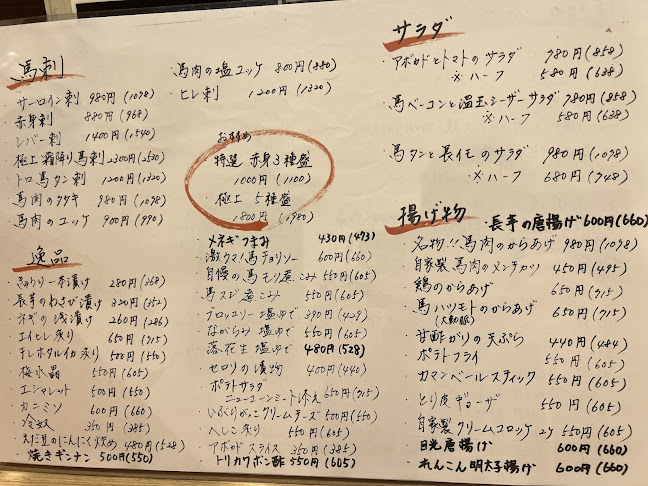 馬刺
・サーロイン刺 980円(1078)
・赤身刺 880円(968)
・レバー刺 1400円(1540)
・極上霜降り馬刺 2300円(2530)
・トロ馬タン刺 1200円(1320)
・馬肉のタタキ 980円(1078)
・馬肉のユッケ 900円(990)
・馬肉の塩ユッケ 800円(880)
・ヒレ刺 1200円(1320)
おすすめ
特選 赤身3種盛
1000円(1100)
・極上 5種盛
1800円(1980)
逸品
・きゅうり一本漬け 280円(308)
・長芋のわさび漬け 320円(352)
・ネギの浅漬け 260円(286)
・エイヒレ炙り 650円(715)
・干しホタルイカ炙り 500円(550)
・桜水晶 550円(605)
・エシャレット 500円(550)
・カニミソ 600円(660)
・冷奴 350円(385)
・えだ豆のにんにく炒め 480円(528)
・焼きギンナン 500円(550)
・メネギつまみ 430円(473)
・激ウマ!馬チョリソー 600円(660)
・自慢の馬モツ煮こみ 550円(605)
・馬スジ煮こみ 550円(605)
・ブロッコリー塩ゆで 390円(429)
・ながらみ塩ゆで 550円(605)
・落花生塩ゆで 480円(528)
・セロリの漬物 400円(440)
・ポテトサラダ
ニューコンミート添え 650円(715)
・いぶりがっこクリームチーズ 500円(550)
・へしこ炙り 550円(605)
・アボカドスライス 350円(385)
・トリカワポン酢 550円(605)
サラダ
・アボカドとトマトのサラダ 780円(858)
※ハーフ 580円(638)
・馬ベーコンと温玉シーザーサラダ 780円(858)
※ハーフ 580円(638)
・馬タンと長イモのサラダ 980円(1078)
※ハーフ 680円(748)
揚げ物
・長芋の唐揚げ 600円(660)
・名物!!馬肉のからあげ 980円(1078)
・自家製馬肉のメンチカツ 450円(495)
・鶏のからあげ 650円(715)
・馬ハツモトのからあげ 650円(715)
(大動脈)
・甘酢がりの天ぷら 440円(484)
・ポテトフライ 550円(605)
・カマンベールスティック 550円(605)
・とり皮ギョーザ 550円(605)
・自家製クリームコロッケ 2ケ 550円(605)
・日光唐揚げ 600円(660)
・れんこん明太子揚げ 600円(660)